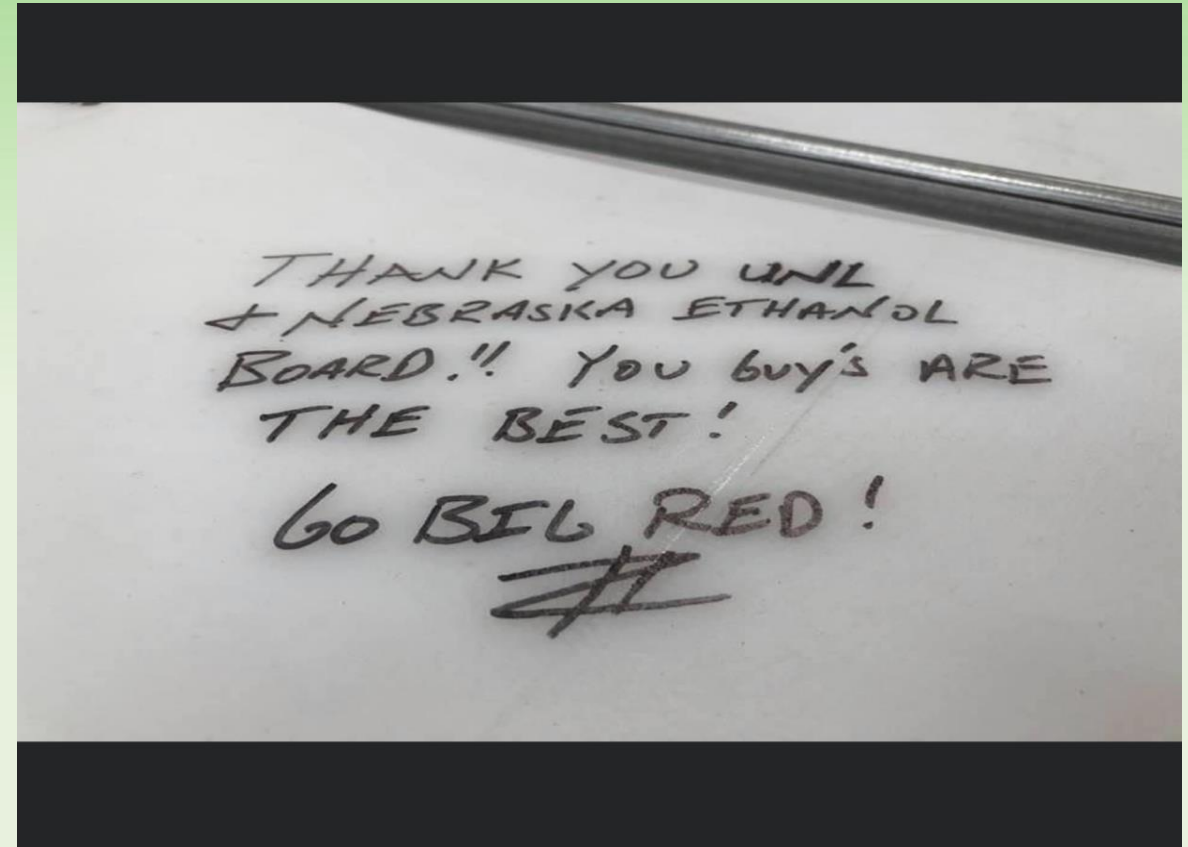 THANK YOU UNL
+ NEBRASKA ETHANOL
BOARD!! YOU GUY'S ARE
THE BEST!
GO BIG RED!